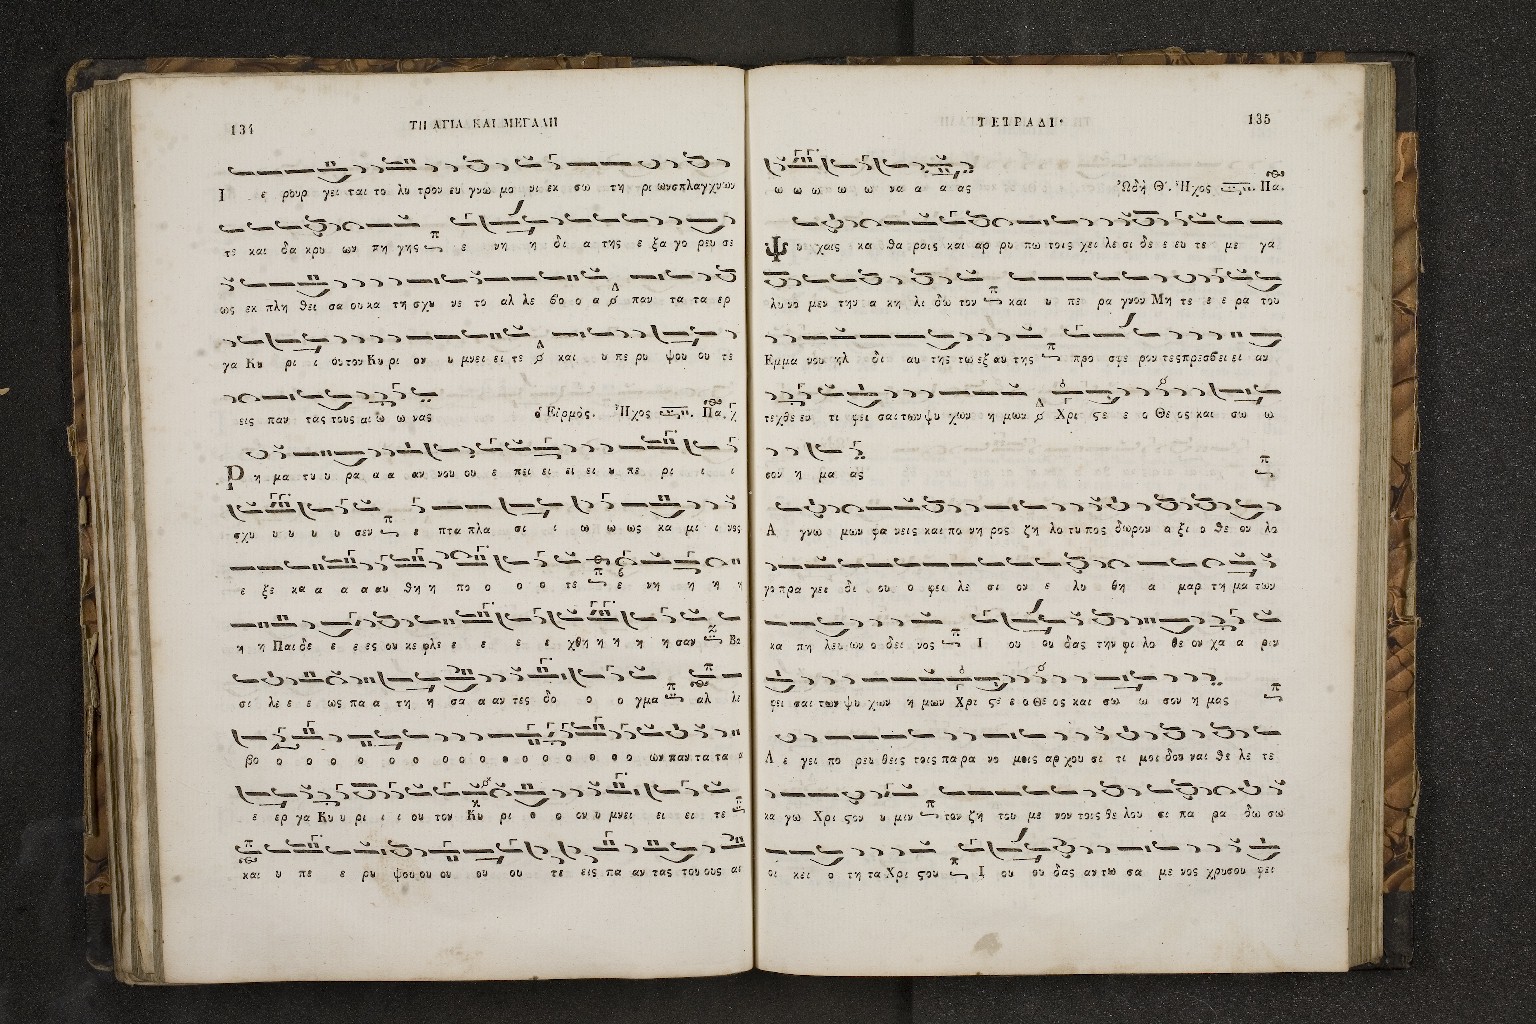 134
ΤΗ ΑΓΙΑ ΚΑΙ ΜΕΓΑΛΗ
Ι ε ρουρ γει ται το λυ τρον ευ γνω μο νι εκ σω τη ρι ωνσπλαγχνων
τε και δα κρυ ων πη γης ε νη η δι α της ε ξα γο ρευ σε
ως εκ πλη θει σα ου κα τη σχυ νε το αλ λε βο ο α παν τα τα ερ
γα Κυ ρι ι ου τον Κυ ρι ον υ μνει ει τε και υ πε ρυ ψου ου τε
εις παν τας τους αι ω ω νας ὁ Εἱρμὸς. Ἦχος Πα.
Ρ η μα τυ υ ρα α α αν νου ου ε πει ει ει ει υ πε ρι ι ι
σχυ υ υ υ υ σεν ε πτα πλα σι ι ω ω ως κα μι ι νος
ε ξε κα α α α αυ θη η πο ο ο ο τε ε νη η η η
η η Παι δε ε ε ες ου κε φλε ε ε ε ε χθη η η η η σαν Βα
σι λε ε ε ως πα α τη η σα α αν τες δο ο ο γμα αλ λε
βο ο ο ο ο ο ο ο ο ο ο ο ο ο ο ων παν τα τα α
ε ερ γα Κυ υ ρι ι ι ου τον Κυ ρι ο ο ον υ μνει ει ει τε
και υ πε ε ρυ ψου ου ου ου ου τε εις πα αν τας του ους αι
ΤΕΤΡΑΔΙ
135
ω ω ω ω ω ω να α α ας Ὠδὴ Θ'. Ἦχος Πα.
Ψ υ χαις κα θα ραις και αρ ρυ πω τοις χει λε σι δε ε ευ τε με γα
λυ νο μεν την α κη λι δω τον και υ πε ρα γνον Μη τε ε ε ρα του
Εμμα νου ηλ δι αυ της τω εξ αυ της προ σφε ρον τες πρεσβει ει αν
τεχθε εν τι φει σαι των ψυ χων η μων Χρι ϛε ε ο Θε ος και σω ω
σον η μα ας
Α γνω μων φα νεις και πο νη ρος ζη λο τυ πος δωρον α ξι ο θε ον λο
γο πρα γει δι ου ο φει λε σι ον ε λυ θη α μαρ τη μα των
κα πη λευ ων ο δει νος Ι ου ου δας την φι λο θε ον χα α ριν
φει σαι των ψυ χων η μων Χρι ϛε ε ο Θε ος και σω ω σον η μας
Λ ε γει πο ρευ θεις τοις πα ρα νο μοις αρ χου σι τι μοι δου ναι θε λε τε
κα γω Χρι ϛον υ μιν τον ζη του με νον τοις θε λου σι πα ρα δω σω
οι κει ο τη τα Χρι ϛου Ι ου ου δας αν τω σα με νος χρυσου φει